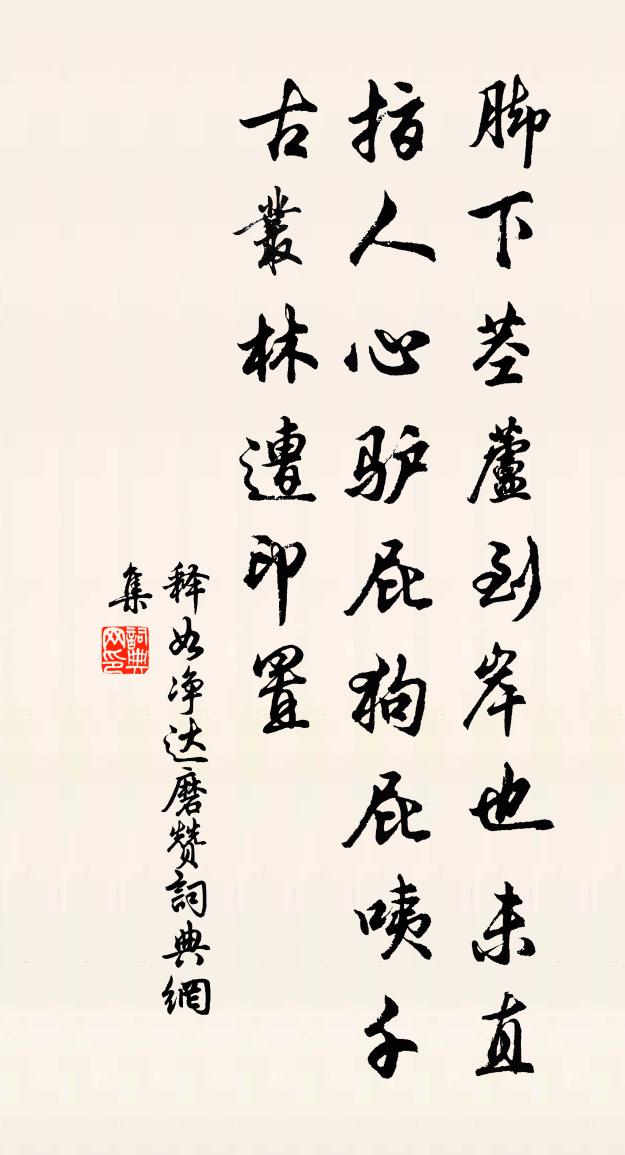 脚下茎蘆到岸也未直
指人心驴屁狗屁咦千
古叢林遭印置
释如净达磨赞詞典網
集
詞典
网印